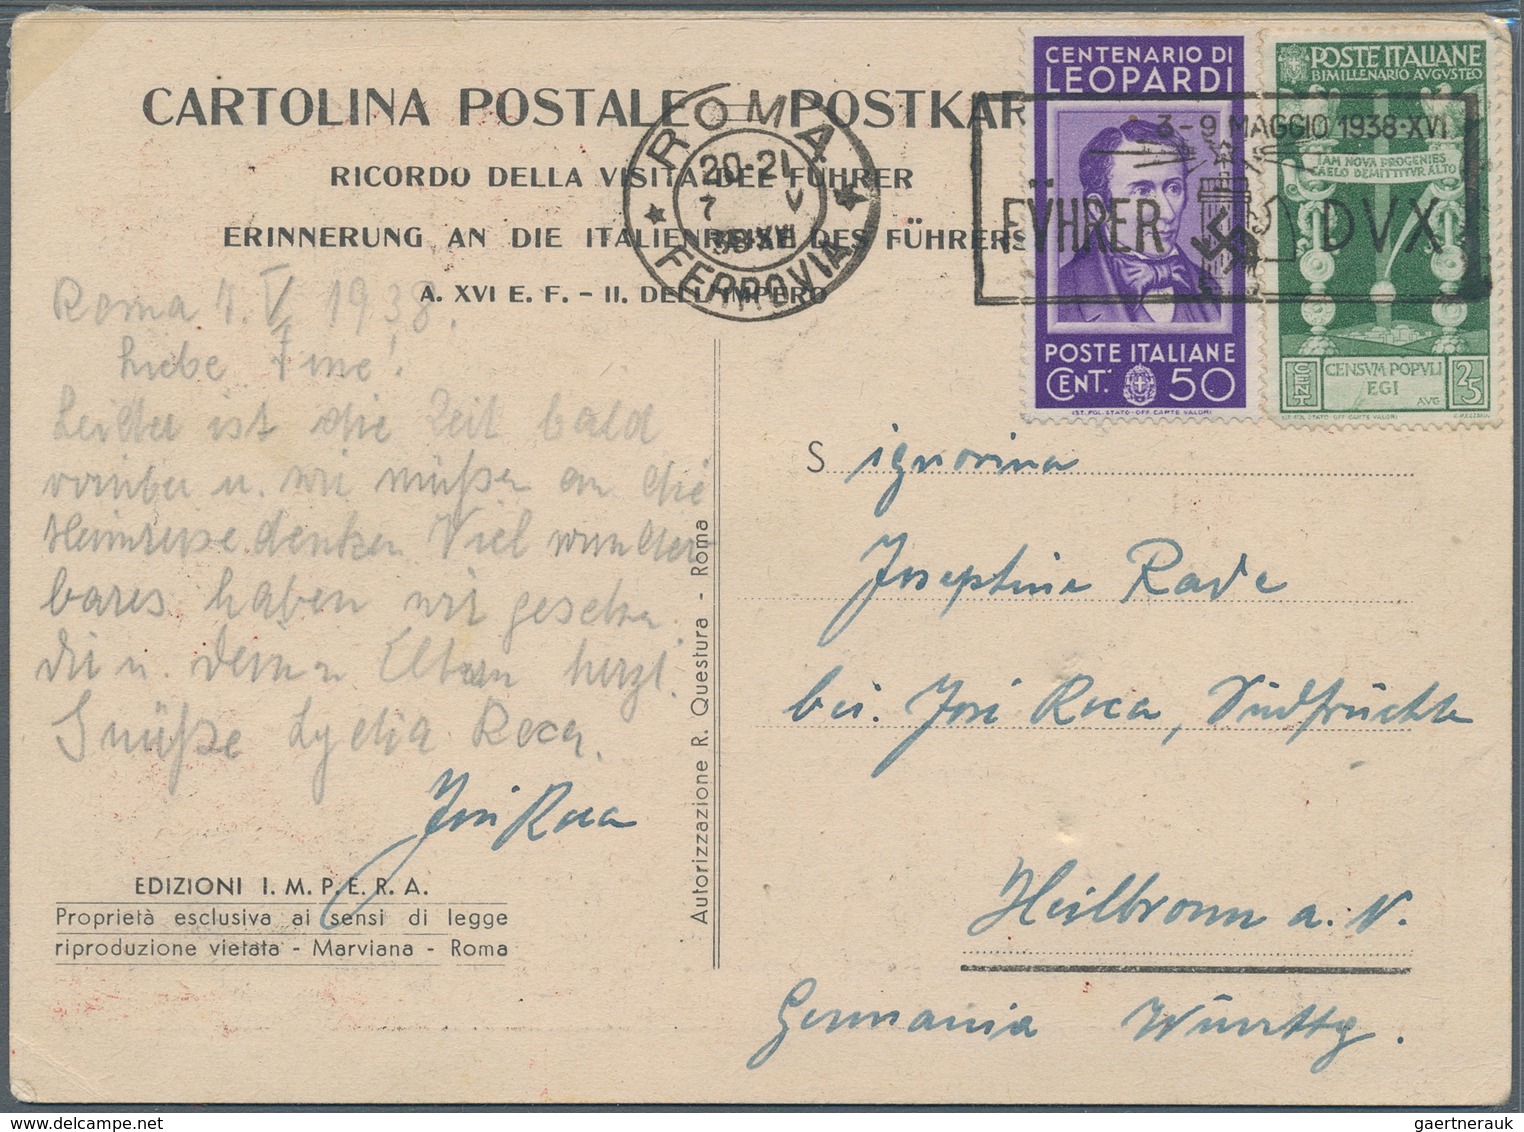 CARTOLINA POSTALE — POSTKAR
RICORDO DELLA VISITA DEL FÜHRER
ERINNERUNG AN DIE ITALIENREISE DES FÜHRERS
A. XVI E. F. - II. DELL'IMPERO
ROMA
20-21
7 V
38·XVI
FERROVIA
CENTENARIO DI
LEOPARDI
POSTE ITALIANE
CENT. 50
IST. POL. STATO - OFF. CARTE VALORI
POSTE ITALIANE
BIMILLENARIO AVGVSTEO
IAM NOVA PROGENIES
CAELO DEMITTITVR ALTO
CENSVM POPVLI
EGI
AVG
CENT
25
IST. POL. STATO - OFF. CARTE VALORI
3-9 MAGGIO 1938·XVI
FÜHRER DVX
Roma 7. V. 1938.
Liebe Fine!
Leider ist die Zeit bald
vorüber u. wir müßen an die
Heimreise denken. Viel wunder-
bares haben wir gesehen.
Dir u. deinen Eltern herzl.
Grüße Lydia Roca.
José Roca
EDIZIONI I. M. P. E. R. A.
Proprietà esclusiva ai sensi di legge
riproduzione vietata - Marviana - Roma
Autorizzazione R. Questura - Roma
Signorina
Josephine Rade
bei José Roca, Südfrüchte
Heilbronn a. N.
Germania Württbg.
gaertnerauk